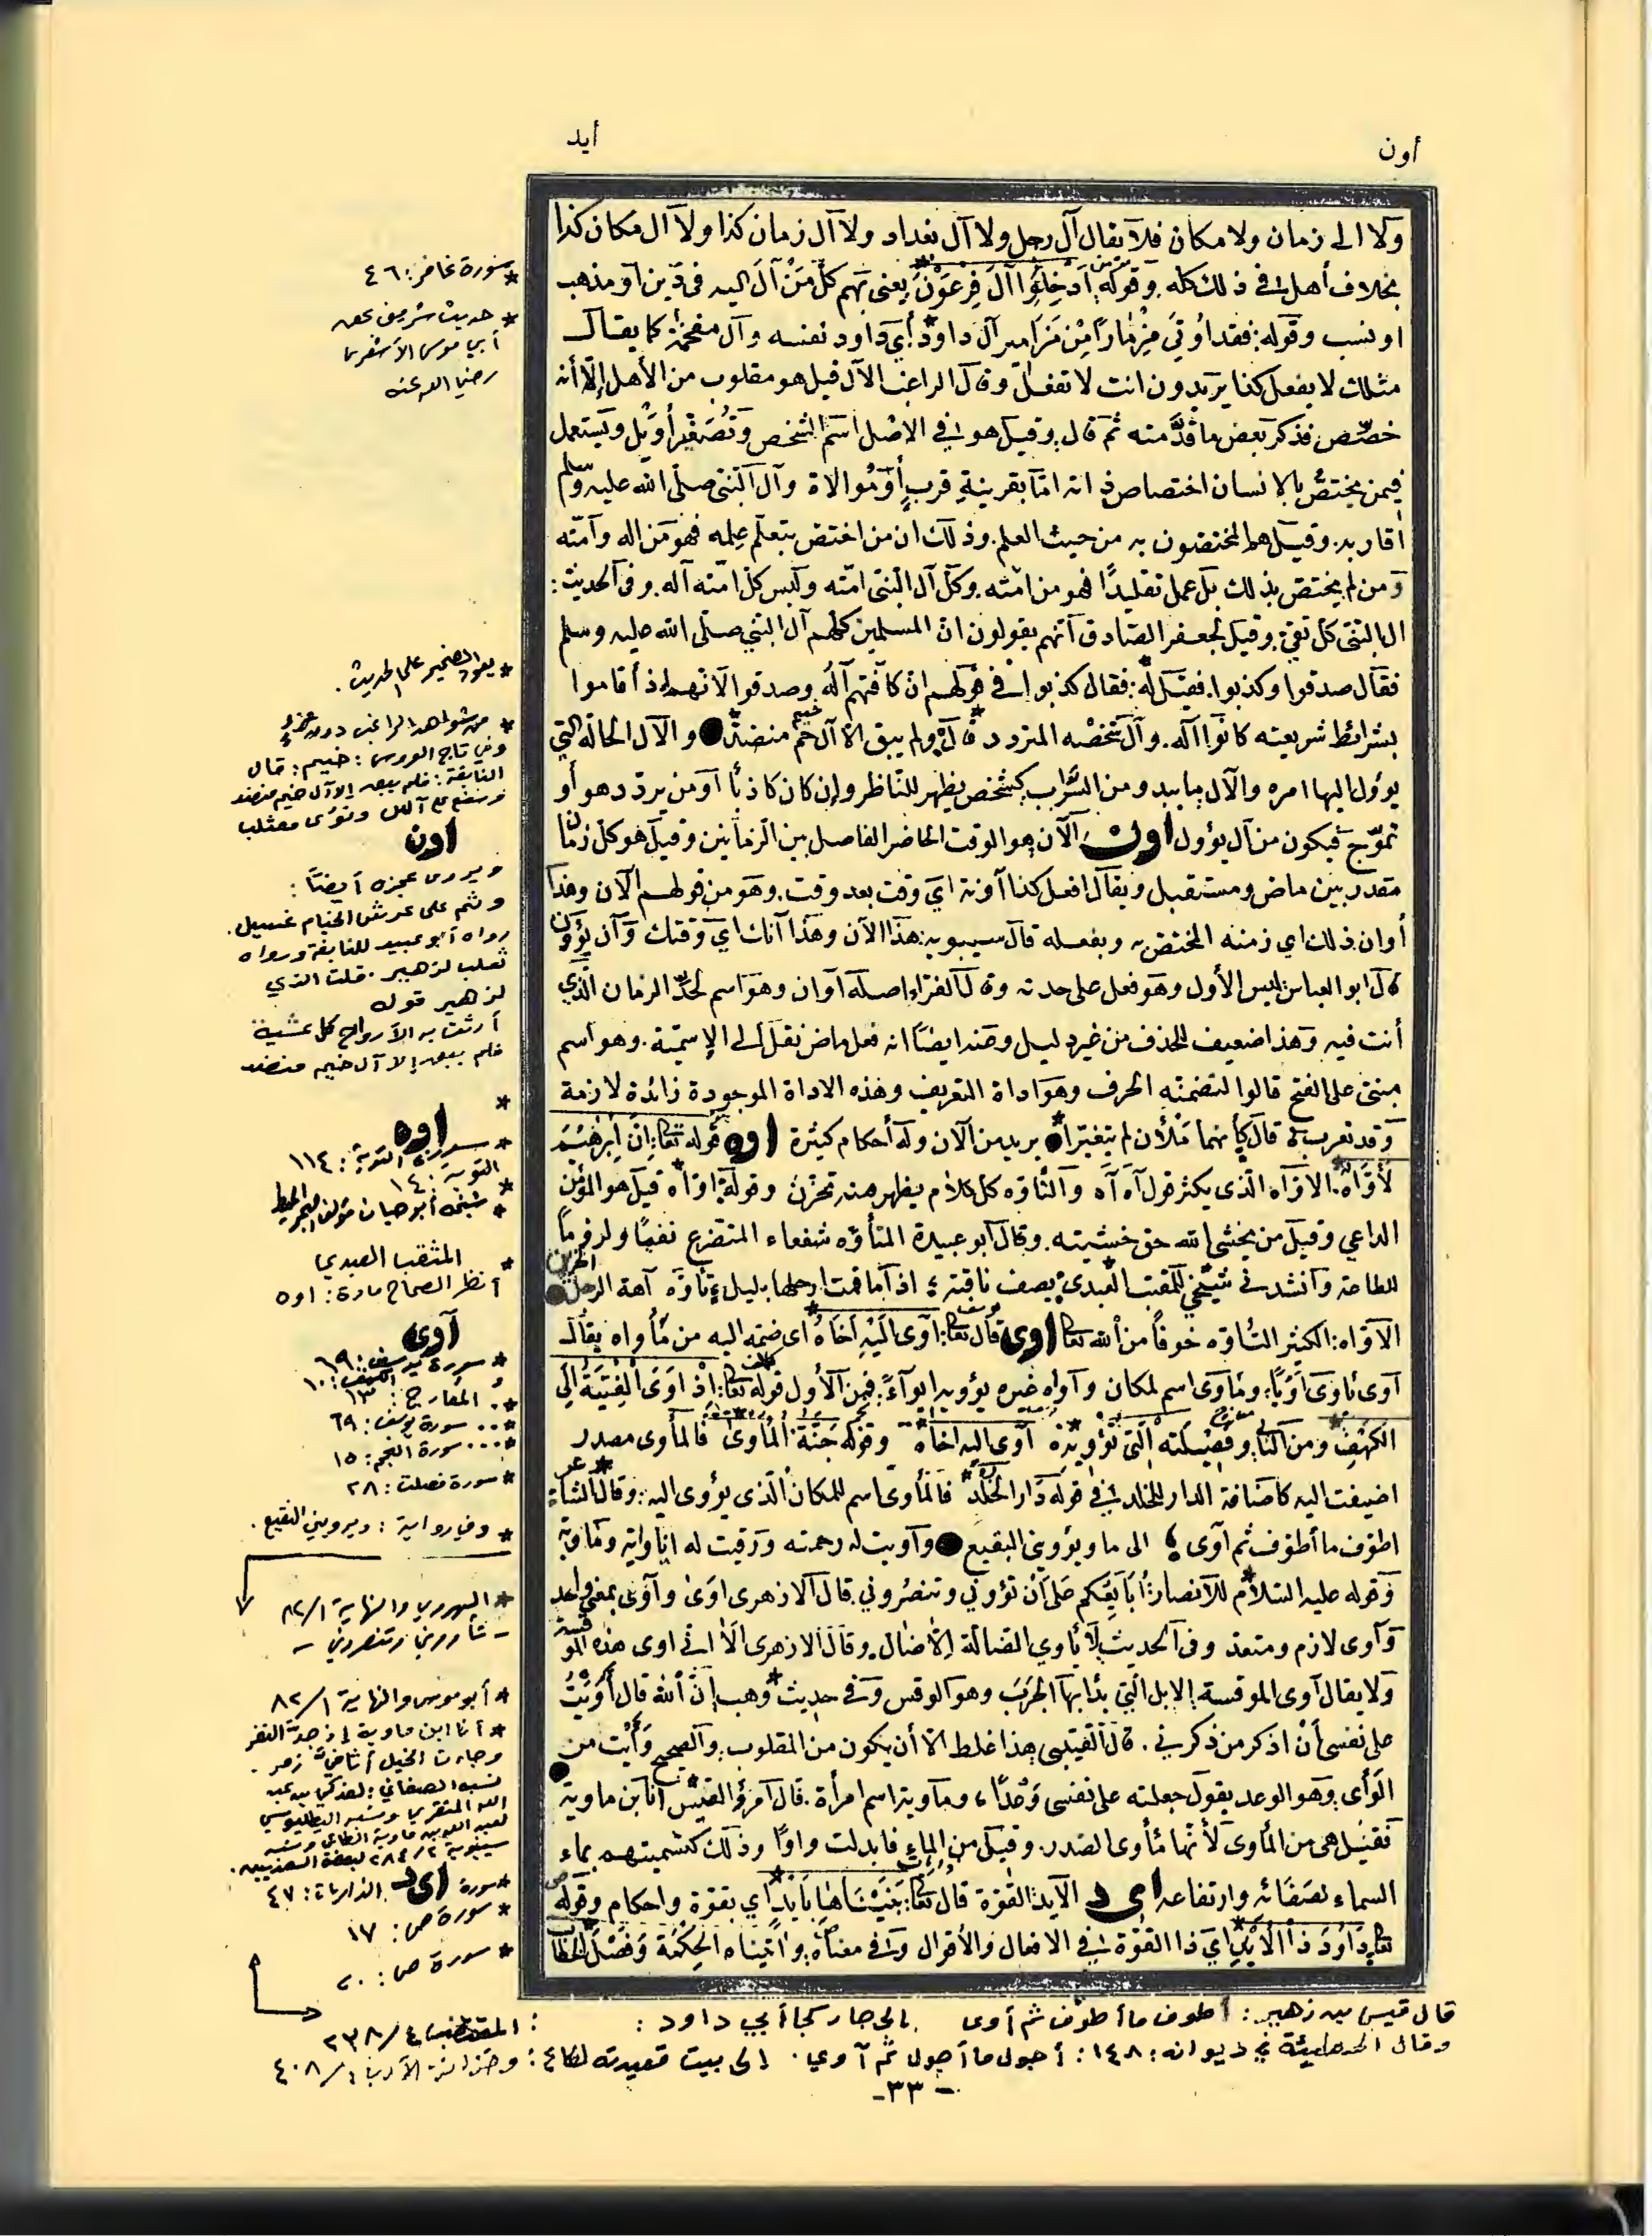 أون
أيد
ولا الى زمان ولا مكان فلا يقال آل رجل ولا آل بغداد ولا آل زمان كذا ولا آل مكان كذا
بخلاف أهل في ذلك كله وقوله أَدْخِلُوا آلَ فِرْعَوْنَ يعني بهم كل مَنْ آلَ اليه في دين او مذهب
او نسب وقوله: فقد أُوتي مِزْمَارًا مِنْ مَزَامِيرِ آل داود أي داود نفسه وآل مفخمة كما يقال
مثلك لا يفعل كذا يريدون انت لا تفعل وقال الراغب الآل قيل هو مقلوب من الأهل إلّا أنه
خصّص فذكر بعض ما قدّمته ثم قال وقيل هو في الاصل اسم الشخص وتُصَغَّر أُوَيْل ويستعمل
فيمن يختصّ بالانسان اختصاص ذاته اما بقرينة قرب أو مُوالاة وآل النبي صلى الله عليه وسلم
أقاربه. وقيل هم المختصون به من حيث العلم. وذلك ان من اختص بتعلّم علمه فهو من اله وأمته
ومن لم يختص بذلك بل عمل تقليدًا فهو من امته. وكل آل النبي امته وليس كل امته آله. وفي الحديث:
ال النبي كل تقي. وقيل لجعفر الصادق أنهم يقولون انّ المسلمين كلهم آل النبي صلى الله عليه وسلم
فقال صدقوا وكذبوا. فقيل له: فقال كذبوا في قولهم انّ كافتهم آله وصدقوا لأنهم إذ أقاموا
بشرائط شريعته كانوا آله. وآل شخصه المتردد قال ولم يبق الا آل خيم منضد والآل الحالة التي
يوؤل اليها امره والآل ما يبدو من السّراب كشخص يظهر للناظر وإن كان كاذبًا أو من يردد هو أو
تموّج فيكون من آل يؤول اون الآن هو الوقت الحاضر الفاصل بين الزمانين وقيل هو كل زمان
مقدر بين ماض ومستقبل ويقال افعل كذا آونة اي وقت بعد وقت. وهو من قولهم الآن وهذا
أوان ذلك اي زمنه المختص به وبفعله قال سيبويه: هذا الآن وهذا آنك اي وقتك وآن يؤون
قال ابو العباس ليس الأول وهو فعل على حدته وقال الفراء اصله أوان وهو اسم لحدّ الزمان الذي
أنت فيه وهذا ضعيف للحذف من غير دليل وعنه ايضًا انه فعل ماض نقل الى الإسمية. وهو اسم
مبني على الفتح قالوا لتضمنه الحرف وهو اداة التعريف وهذه الاداة الموجودة زائدة لازمة
وقد تعرب قال كأنهما مَلْآن لم يتغيرا يريد من الآن وله أحكام كثيرة اوه قوله تعالى: إن إبرهيم
لأوّاهٌ. الاوّاه الذي يكثر قول آه آه والتأوّه كل كلام يظهر منه تحزن وقوله: اوّاه قيل هو المؤمن
الداعي وقيل من يخشى الله حق خشيته. وقال ابو عبيدة المتأوّه شفعاء المتضرع نفعًا ولزومًا
للطاعة وأنشدني شيخي للمثقب العبدي يصف ناقته: اذا ما قمت ارحلها بليل تأوّه آهة الرجل الحزين
الاوّاه: الكثير التأوّه خوفًا من الله تعالى اوى قال تعالى: آوَى إلَيْهِ أَخَاهُ اى ضمّه اليه من مأواه يقال
آوى يأوي أَوْيًا، ومأوى اسم لمكان وآواه غيره يؤويه ايوآءً. فمن الأول قوله تعالى: إِذْ اَوَى الفِتْيَةُ إلى
الكهف ومن الثاني وفَصِيلَته الّتي تُؤْوِيهِ آوى اليه اخاه وقوله جَنَّةُ الْمَأْوَى فالمأوى مصدر
اضيفت اليه كاضافة الدار للخلد في قوله دَارُ الخُلْدِ فالمأوى اسم للمكان الذى يؤوى اليه: وقال الشاعر
اطوّف ما أطوف ثم آوى الى ما ويؤويني البقيع وآويت له رحمته ورقيت له ايا واية ومأوية
وقوله عليه السلام للأنصار: أُبَايِعُكُم عَلَى أَنْ تؤوني وتنصروني قال الازهرى اَوَى وآوى بمعنى واحد
وآوى لازم ومتعد وفي الحديث لا يأوي الضالة إلا ضال. وقال الازهرى ألا اني اوى هذه الموقسة
ولا يقال آوى الموقسة: الابل التي بدا بها الجرب وهو الوقس وفي حديث وهب إنّ الله قال أَوَيْتُ
على نفسي أن اذكر من ذكرني. قال القتيبي هذا غلط الا أن يكون من المقلوب. والصحيح وَأَيْتُ من
الوَأى وهو الوعد يقول جعلته على نفسي وَعْدًا، وماوية اسم امرأة. قال آمرؤ القيس انا ابن ماوية
فقيل هى من المأوى لأنها مأوى الصدر. وقيل من الماء فابدلت واوًا وذلك كتسميتهم بماء
السماء لصفائه وارتفاعه ايد الأيد القوة قال تعالى: بَنَيْنَاهَا بِأَيْدٍ أي بقوّة واحكام وقوله
تعالى دَاوُدَ ذَا الأَيْدِ اي ذا القوّة في الافعال والأقوال وفي معناه: واتيناه الحِكْمَة وَفَصْلَ الخطاب
* سورة غافر: ٤٦
* حديث شريف عن
أبي موسى الأشعري
رضي الله عنه
* يعود الضمير على الحديث.
* من شواهد الراغب دون عزو
وفي تاج العروس: خيم: قال
النابغة: فلم يبق إلا آل خيم منضد
وسفع على آس ونؤي معثلب
أون
ويروى عجزه أيضًا:
وثم على عرش الخيام غسيل.
رواه أبو عبيد للنابغة ورواه
ثعلب لزهير. قلت الذي
لزهير قوله
أرثت به الأرواح كل عشية
فلم يبق إلا آل خيم منضد
*
اوه
* سورة التوبة: ١١٤
* شيخه أبو حيان مؤلف البحر المحيط
* المثقب العبدي
أنظر الصحاح مادة: اوه
آوى
* سورة يوسف: ٦٩
و الكهف: ١٠
*. المعارج: ١٣
*.. سورة يوسف: ٦٩
*... سورة النجم: ١٥
* سورة فصلت: ٢٨
* وفي رواية: ويرويني النقيع.
* الهروي والنهاية ٨٢/١
- تأووني وتنصروني -
* أبو موسى والنهاية ٨٢/١
* أنا ابن ماوية إذ جدّ النقر
وجاءت الخيل أثافيّ زمر.
نسبه الصغاني: لفدكي بن عبد
الله المنقري ونسبه البطليوسي
لعبد الله بن ماوية الطائي ونسبه
سيبويه ٢٨٤/٢ لبعض السعديين.
ايد
* سورة الذاريات: ٤٧
* سورة ص: ١٧
* سورة ص: ٢٠
قال قيس بن زهير: أطوف ما أطوف ثم أوى إلى جار كجار أبي داود: المقتضب ٢٣٨/٤
وقال الحطيئة في ديوانه: ١٤٨: أجول ما أجول ثم آوي. إلى بيت قعيدته لكاع: وخزانة الأدب ٤٠٨/١
-٣٣-